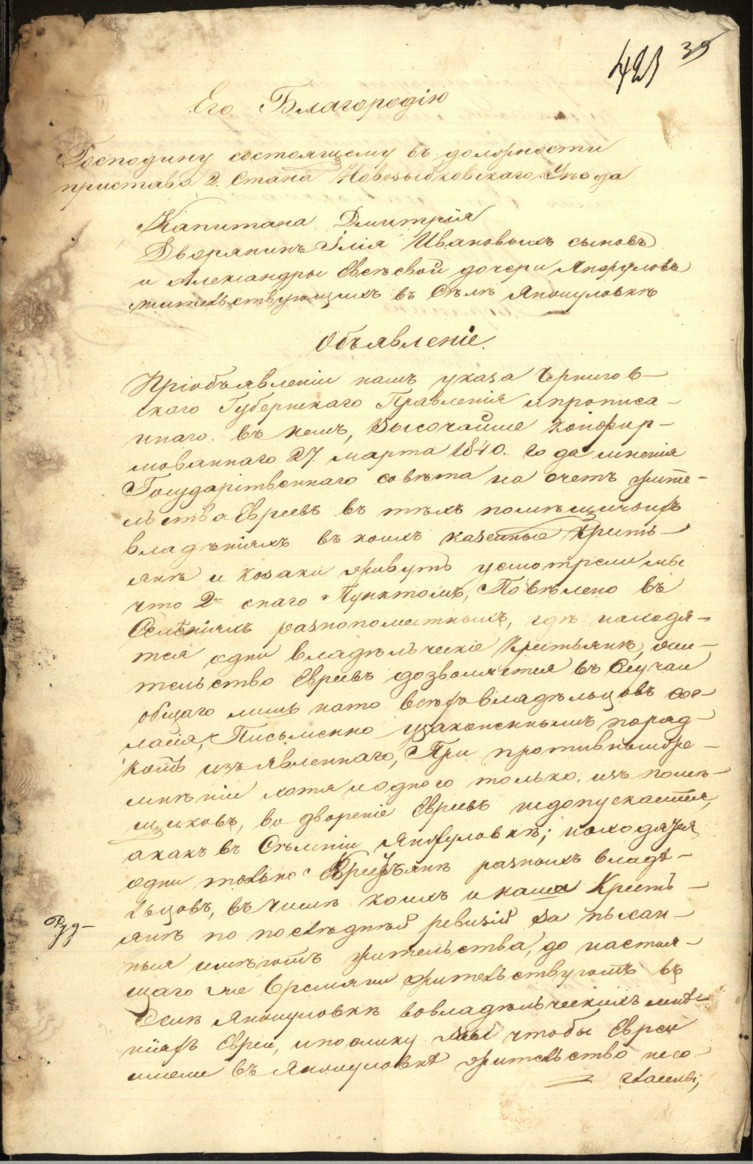 421 39
Его Благородію
Господину состоящему въ должности
пристава 2. Стана Новозыбковскаго Уѣзда
Капитана Дмитрія
Дворянинъ Илія Ивановыхъ сыновъ
и Александры Евсѣевой дочери
жительствующихъ въ Селѣ
Объявленіе.
Пріобъявленіи намъ указа Чернигов-
скаго Губернскаго Правленія ипрописа-
ннаго въ немъ, Высочайше конфир-
мованнаго 27. марта 1840. года мненія
Государственнаго совѣта на счетъ жите-
льства Евреевъ въ тѣхъ помѣщичьихъ
владѣніяхъ въ коихъ казенные Крѣсть-
яне и козаки живутъ усмотрели мы
что 2-скаго Пунктомъ, Повѣлено въ
Селѣніяхъ разнопоместныхъ, гдѣ находя-
тся одни владѣльческіе Крестьяне, жи-
тельство Евреевъ дозволяется въ Случаи
общаго лишь нато всѣхъ владѣльцовъ сог-
ласія, Письменно узаконеннымъ поряд-
комъ изъявленнаго, При противномъже
мненіи хотя иодного только изъ помѣ-
щиковъ, водвореніе Евреевъ недопускается,
акакъ въ Селѣніи находятся
одни только Крестьяне разныхъ владѣ-
льцовъ, въ числѣ коихъ и наши Кресть-
яне по послѣдней ревизіи записан-
ныя имѣютъ жительства, до настоя-
щаго же времяни жительствуютъ въ
Селѣ вовладѣльческихъ имѣ-
ніяхъ Евреи, ипоелику мы чтобы Евреи
имели въ жительство несо-
гласны;